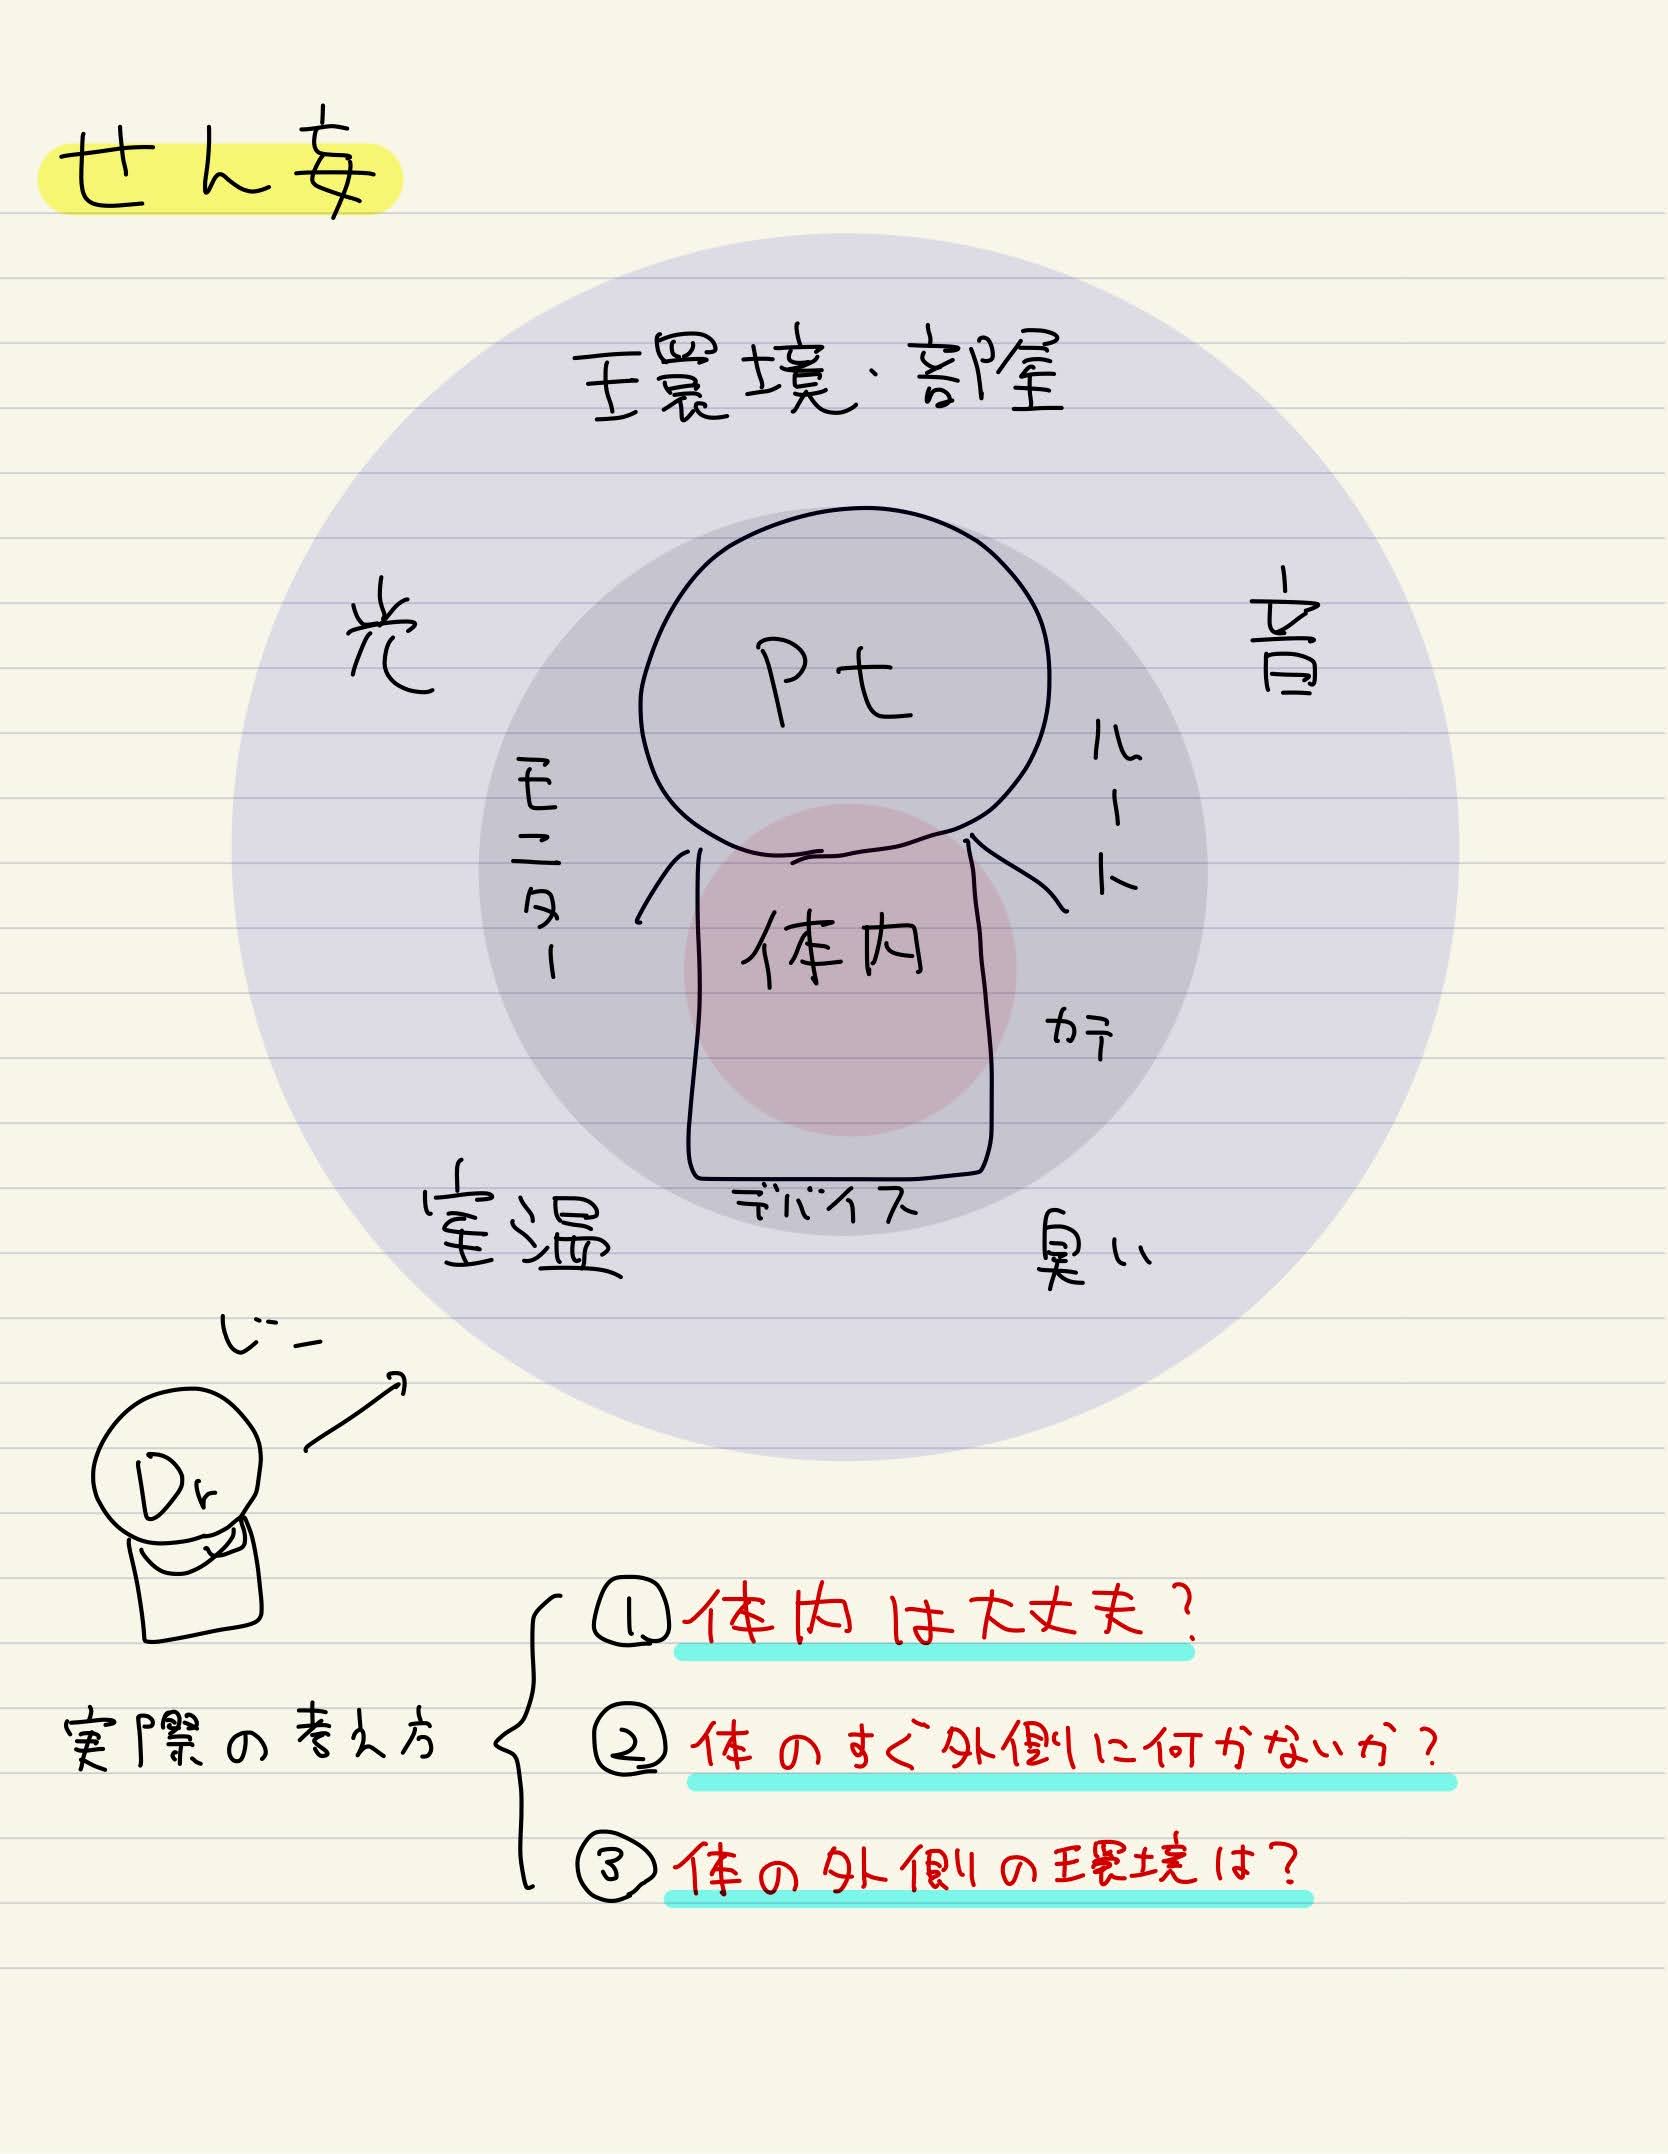 せん妄
環境・部屋
光
音
Pt
モニター
ルート
体内
カテ
デバイス
室温
臭い
じー
Dr
①体内は大丈夫?
実際の考え方
②体のすぐ外側に何かないか?
③体の外側の環境は?